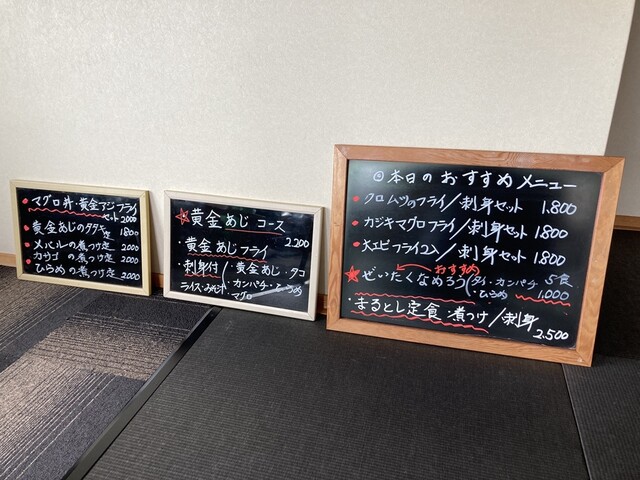 マグロ丼・黄金アジフライ
セット 2000
黄金あじのタタキ定 1800
メバルの煮つけ定 2000
カサゴの煮つけ定 2000
ひらめの煮つけ定 2000
黄金あじコース
2.200
・黄金あじフライ
・刺身付/・黄金あじ・タコ
ライス・みそ汁・カンパチ・ひらめ
マグロ
本日のおすすめメニュー
クロムツのフライ/刺身セット 1.800
カジキマグロフライ/刺身セット 1.800
大エビフライ2コ/刺身セット 1.800
おすすめ
ぜいたくなめろう(タイ・カンパチ 5食
・ひらめ 1,000
・まるとし定食・煮つけ/刺身
2.500